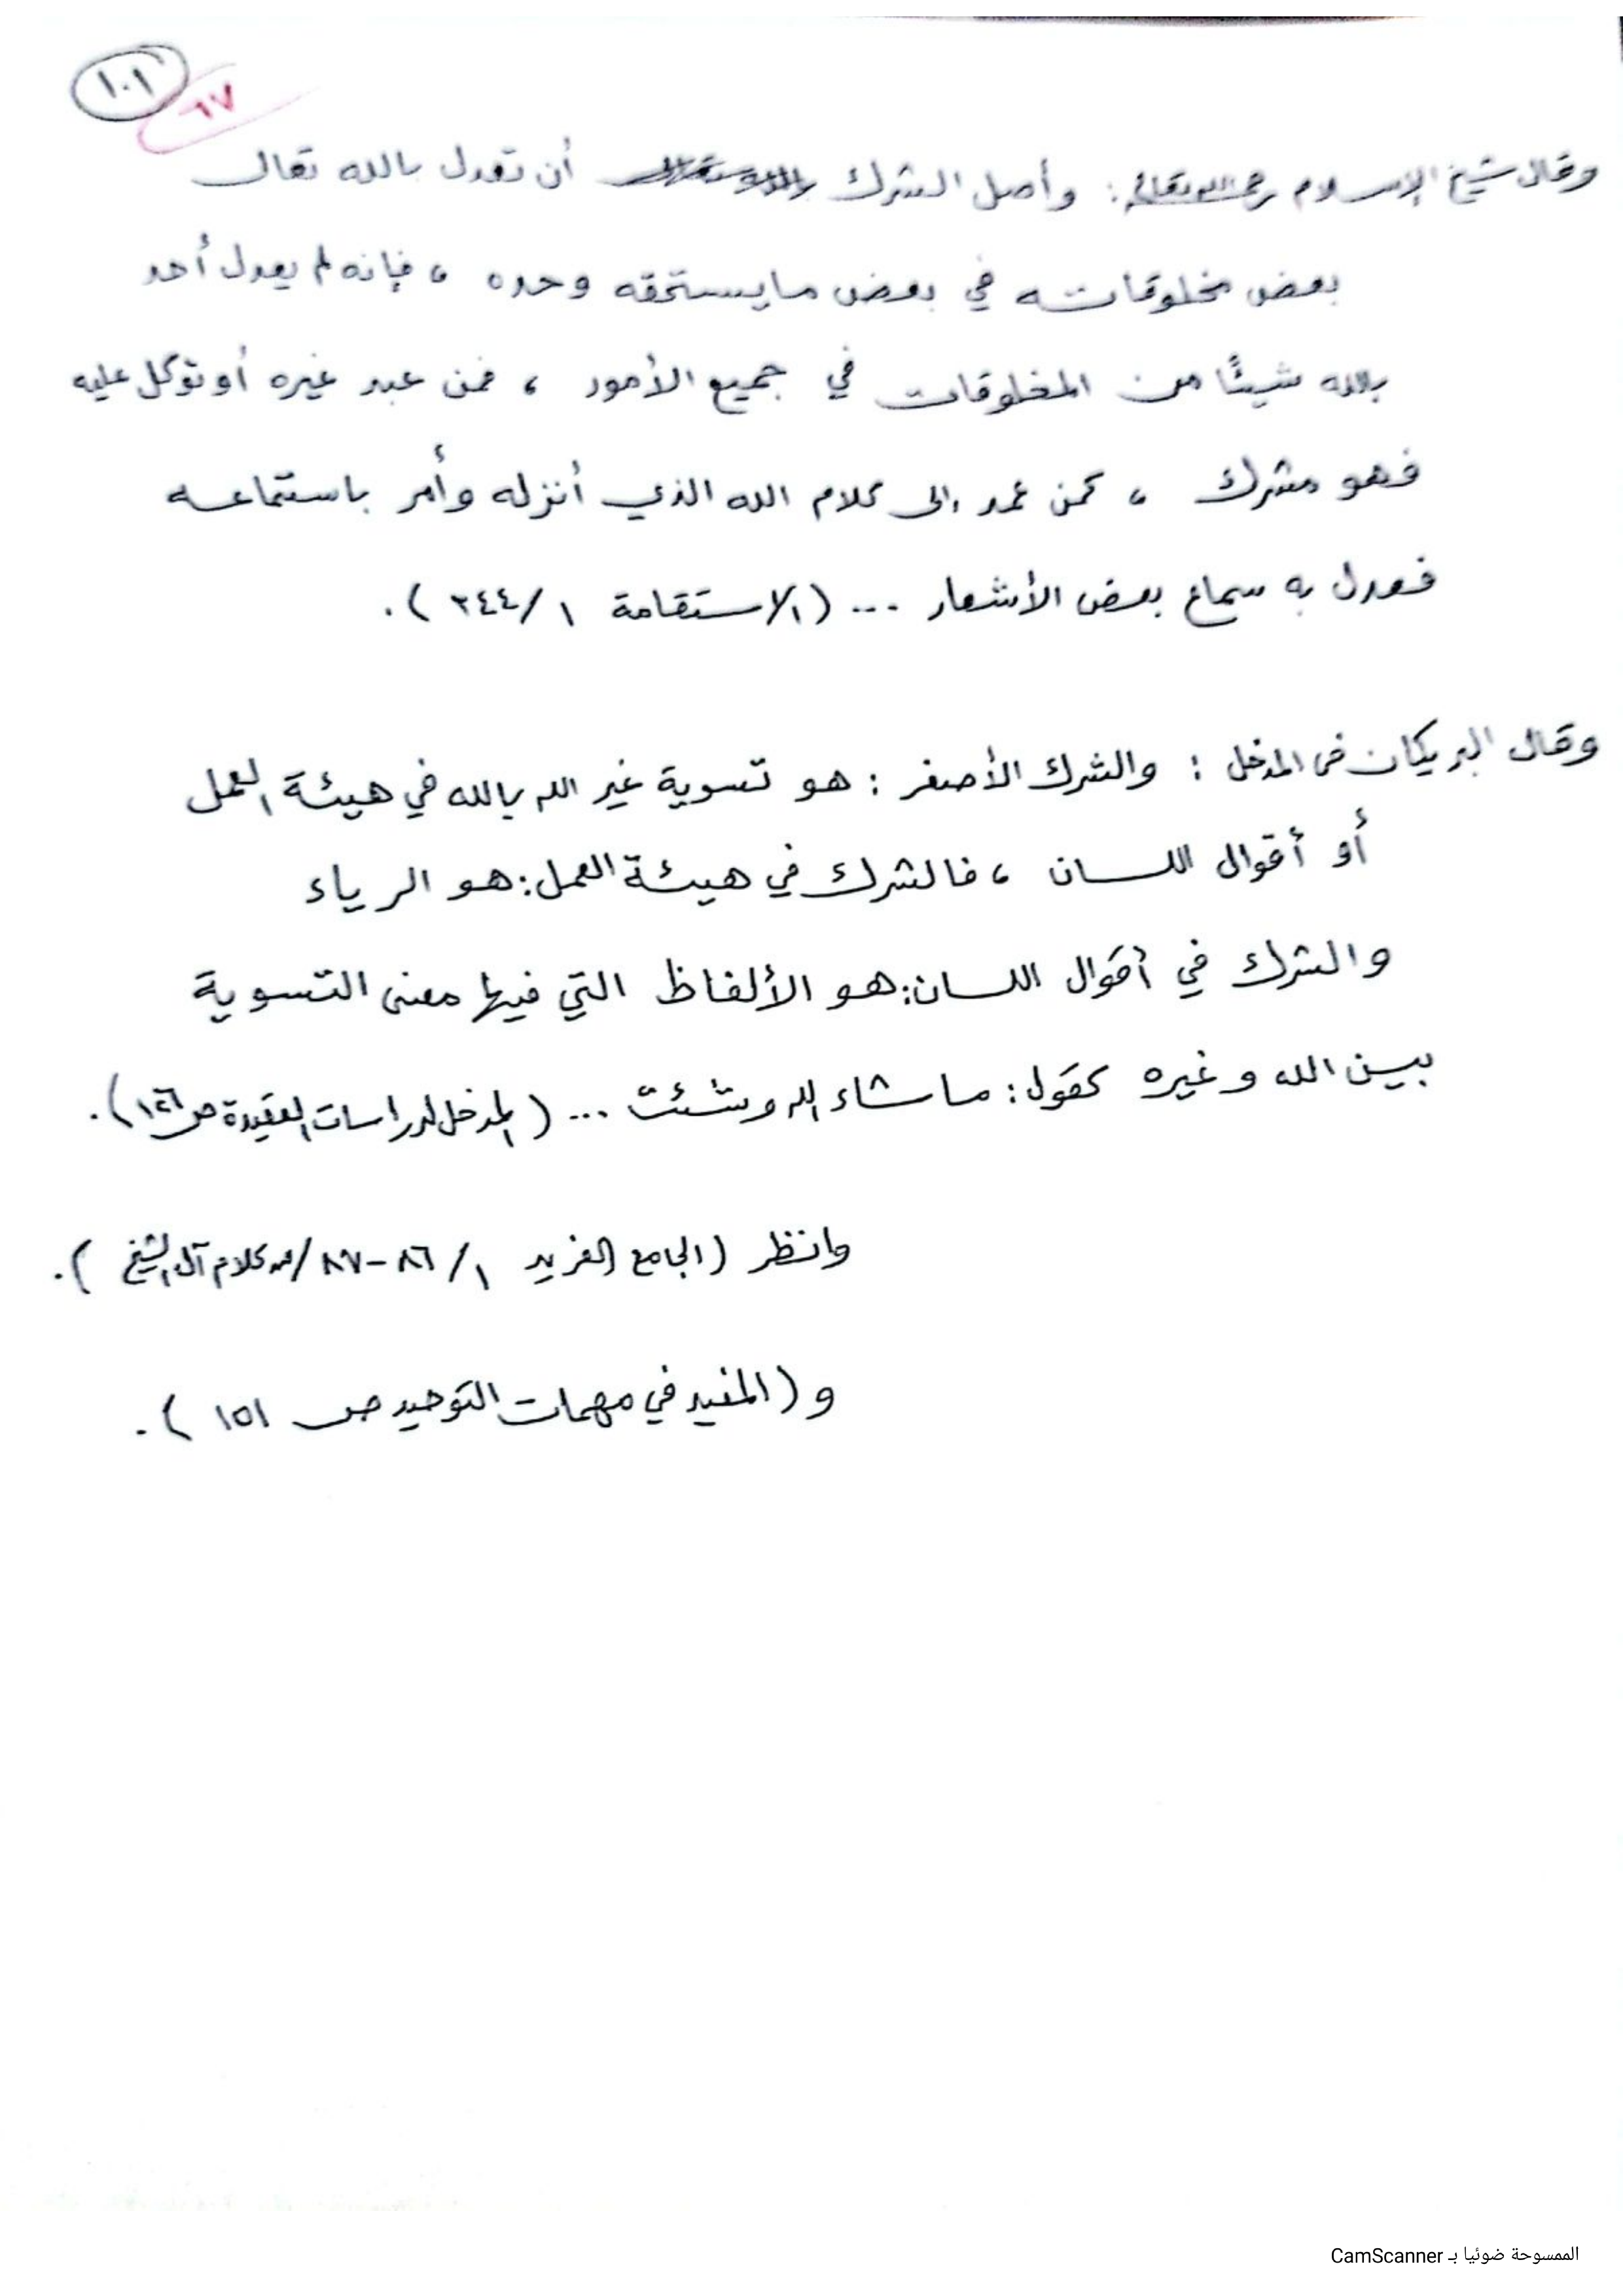 ١٠١
٦٧
وقال شيخ الإسلام رحمه الله تعالى : وأصل الشرك أن تعدل بالله تعالى
بعض مخلوقاته في بعض ما يستحقه وحده ، فإنه لم يعدل أحد
بالله شيئًا من المخلوقات في جميع الأمور ، فمن عبد غيره أو توكل عليه
فهو مشرك ، كمن عمد إلى كلام الله الذي أنزله وأمر باستماعه
فعدل به سماع بعض الأشعار ... (الاستقامة ١/٣٤٤).
وقال البريكان في المدخل : والشرك الأصغر : هو تسوية غير الله بالله في هيئة العمل
أو أقوال اللسان ، فالشرك في هيئة العمل: هو الرياء
والشرك في أقوال اللسان: هو الألفاظ التي فيها معنى التسوية
بين الله وغيره كقول: ما شاء الله وشئت ... (المدخل لدراسات العقيدة ص١٢٦).
وانظر (الجامع الفريد ١/ ٨٦-٨٧/من كلام آل الشيخ ).
و (المفيد في مهمات التوحيد ص ١٥١ ).
الممسوحة ضوئيا بـ CamScanner